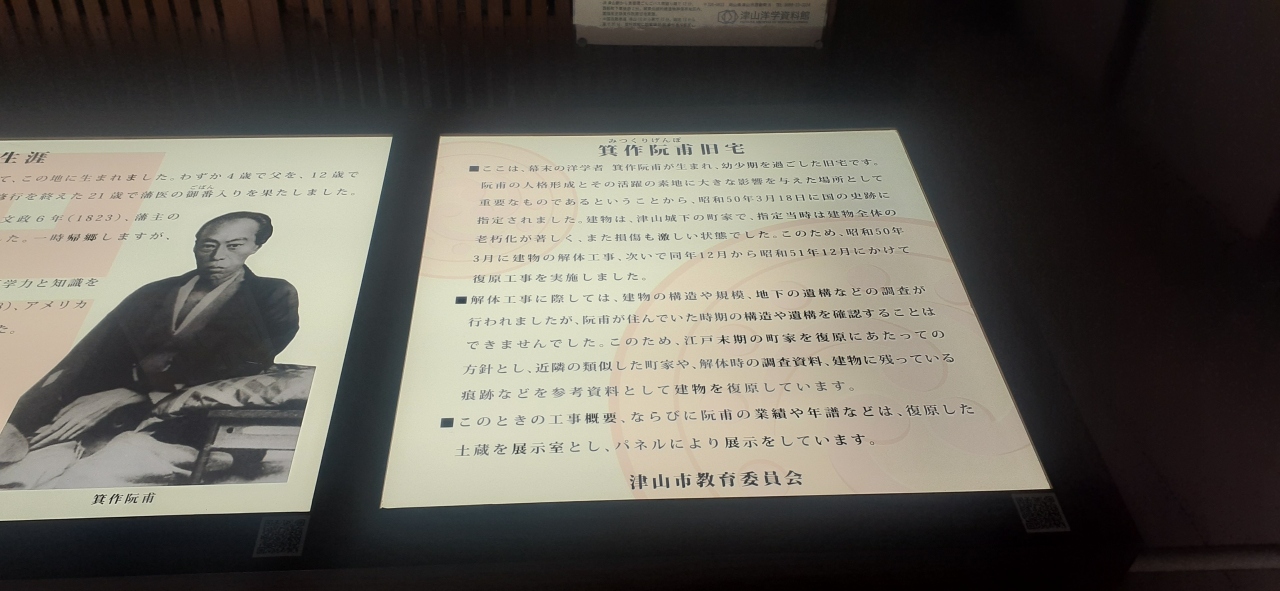 津山洋学資料館
生涯
て、この地に生まれました。わずか4歳で父を、12歳で
修行を終えた21歳で藩医の御番入りを果たしました。
ごばん
文政6年(1823)、藩主の
た。一時帰郷しますが、
学力と知識を
、アメリカ
た。
箕作阮甫
みつくりげんぽ
箕作阮甫旧宅
■ここは、幕末の洋学者 箕作阮甫が生まれ、幼少期を過ごした旧宅です。
阮甫の人格形成とその活躍の素地に大きな影響を与えた場所として
重要なものであるということから、昭和50年3月18日に国の史跡に
指定されました。建物は、津山城下の町家で、指定当時は建物全体の
老朽化が著しく、また損傷も激しい状態でした。このため、昭和50年
3月に建物の解体工事、次いで同年12月から昭和51年12月にかけて
復原工事を実施しました。
■解体工事に際しては、建物の構造や規模、地下の遺構などの調査が
行われましたが、阮甫が住んでいた時期の構造や遺構を確認することは
できませんでした。このため、江戸末期の町家を復原にあたっての
方針とし、近隣の類似した町家や、解体時の調査資料、建物に残っている
痕跡などを参考資料として建物を復原しています。
■このときの工事概要、ならびに阮甫の業績や年譜などは、復原した
土蔵を展示室とし、パネルにより展示をしています。
津山市教育委員会